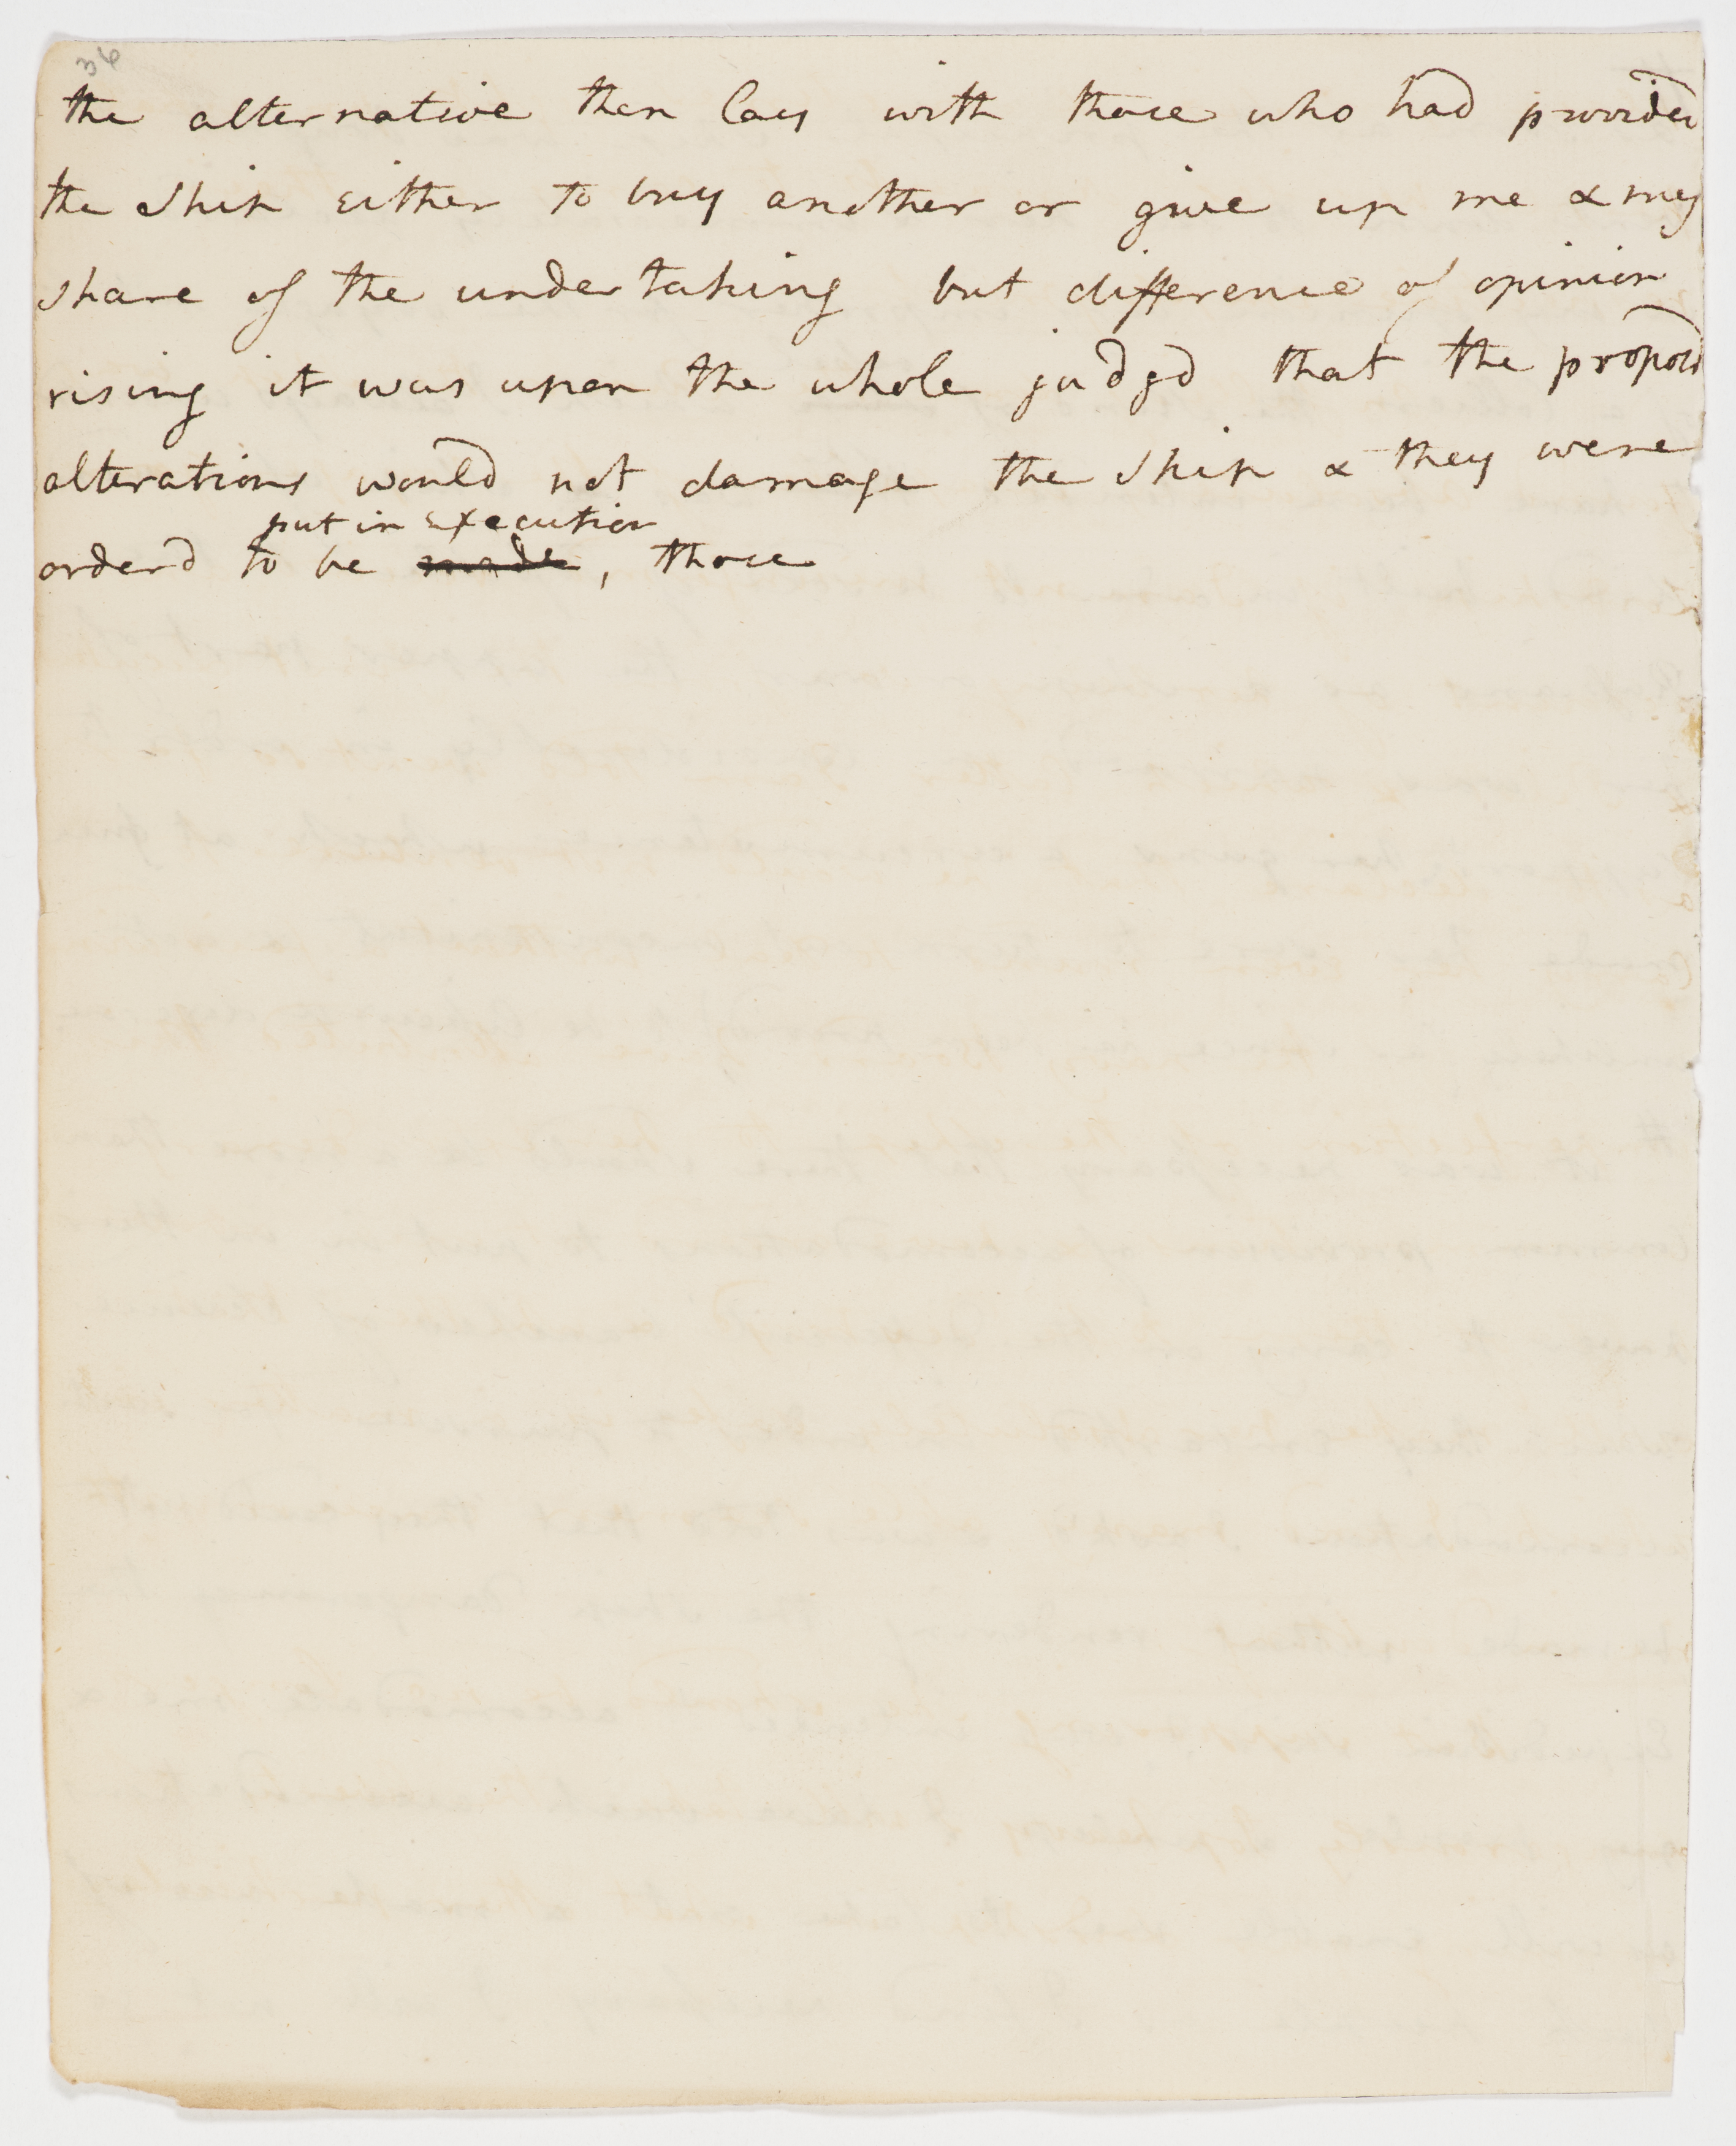 36
the alternative then lay with those who had provided
the Ship either to buy another or give up me & my
share of the undertaking but difference of opinion
rising it was upon the whole judgd that the proposd
alterations would not damage the Ship & they were
put in execution
orderd to be made, those